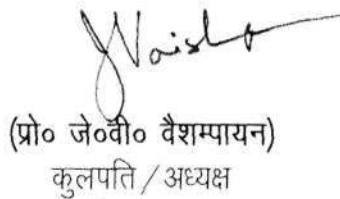 (प्रो० जे०वी० वैशम्पायन)
कुलपति / अध्यक्ष